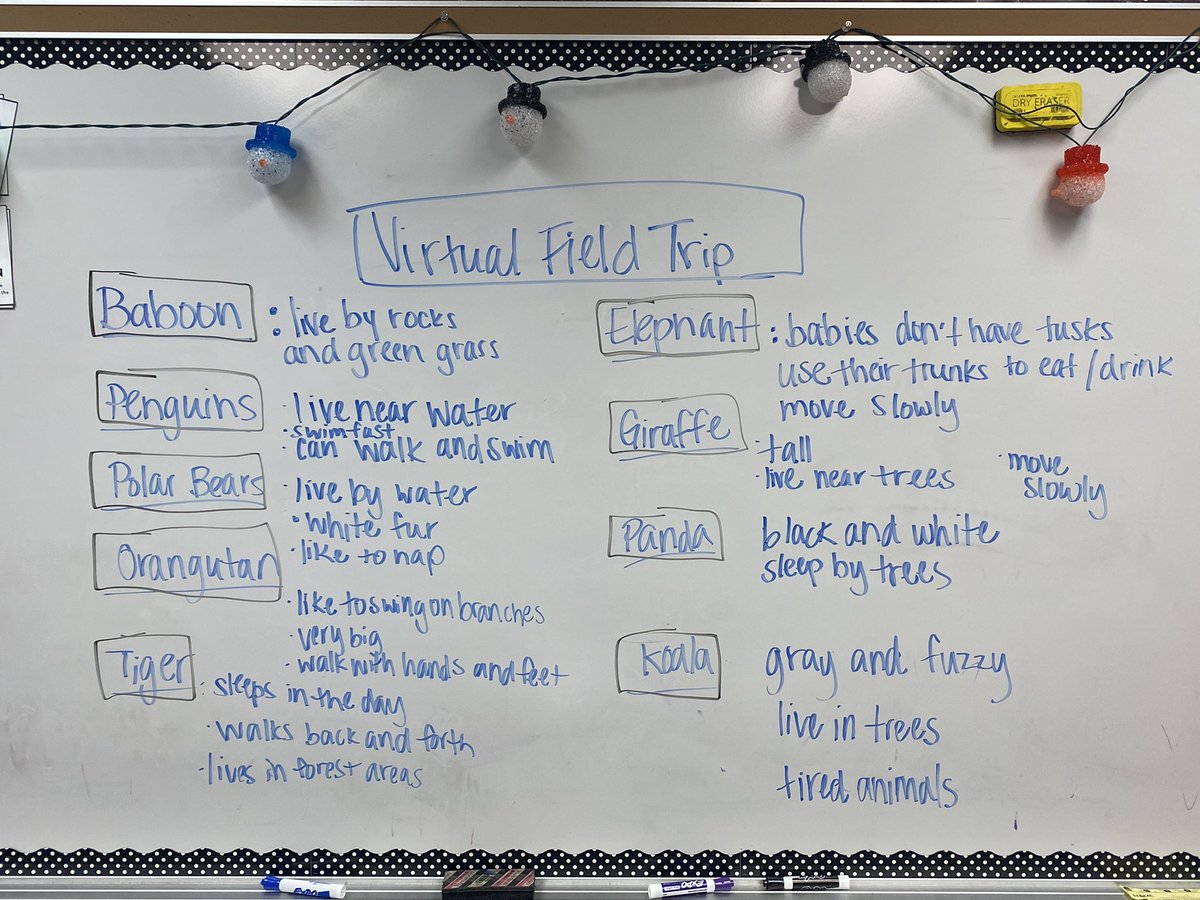 DRY ERASER
Virtual Field Trip
Baboon
: live by rocks
and green grass
Penguins
· live near water
· swim fast
· can walk and swim
Polar Bears
· live by water
· white fur
· like to nap
Orangutan
· like to swing on branches
· very big
· walk with hands and feet
Tiger
: sleeps in the day
· walks back and forth
· lives in forest areas
Elephant
: babies don't have tusks
use their trunks to eat/drink
move slowly
Giraffe
· tall
· live near trees
· move
slowly
Panda
black and white
sleep by trees
Koala
gray and fuzzy
live in trees
tired animals
EXPO
EXPO